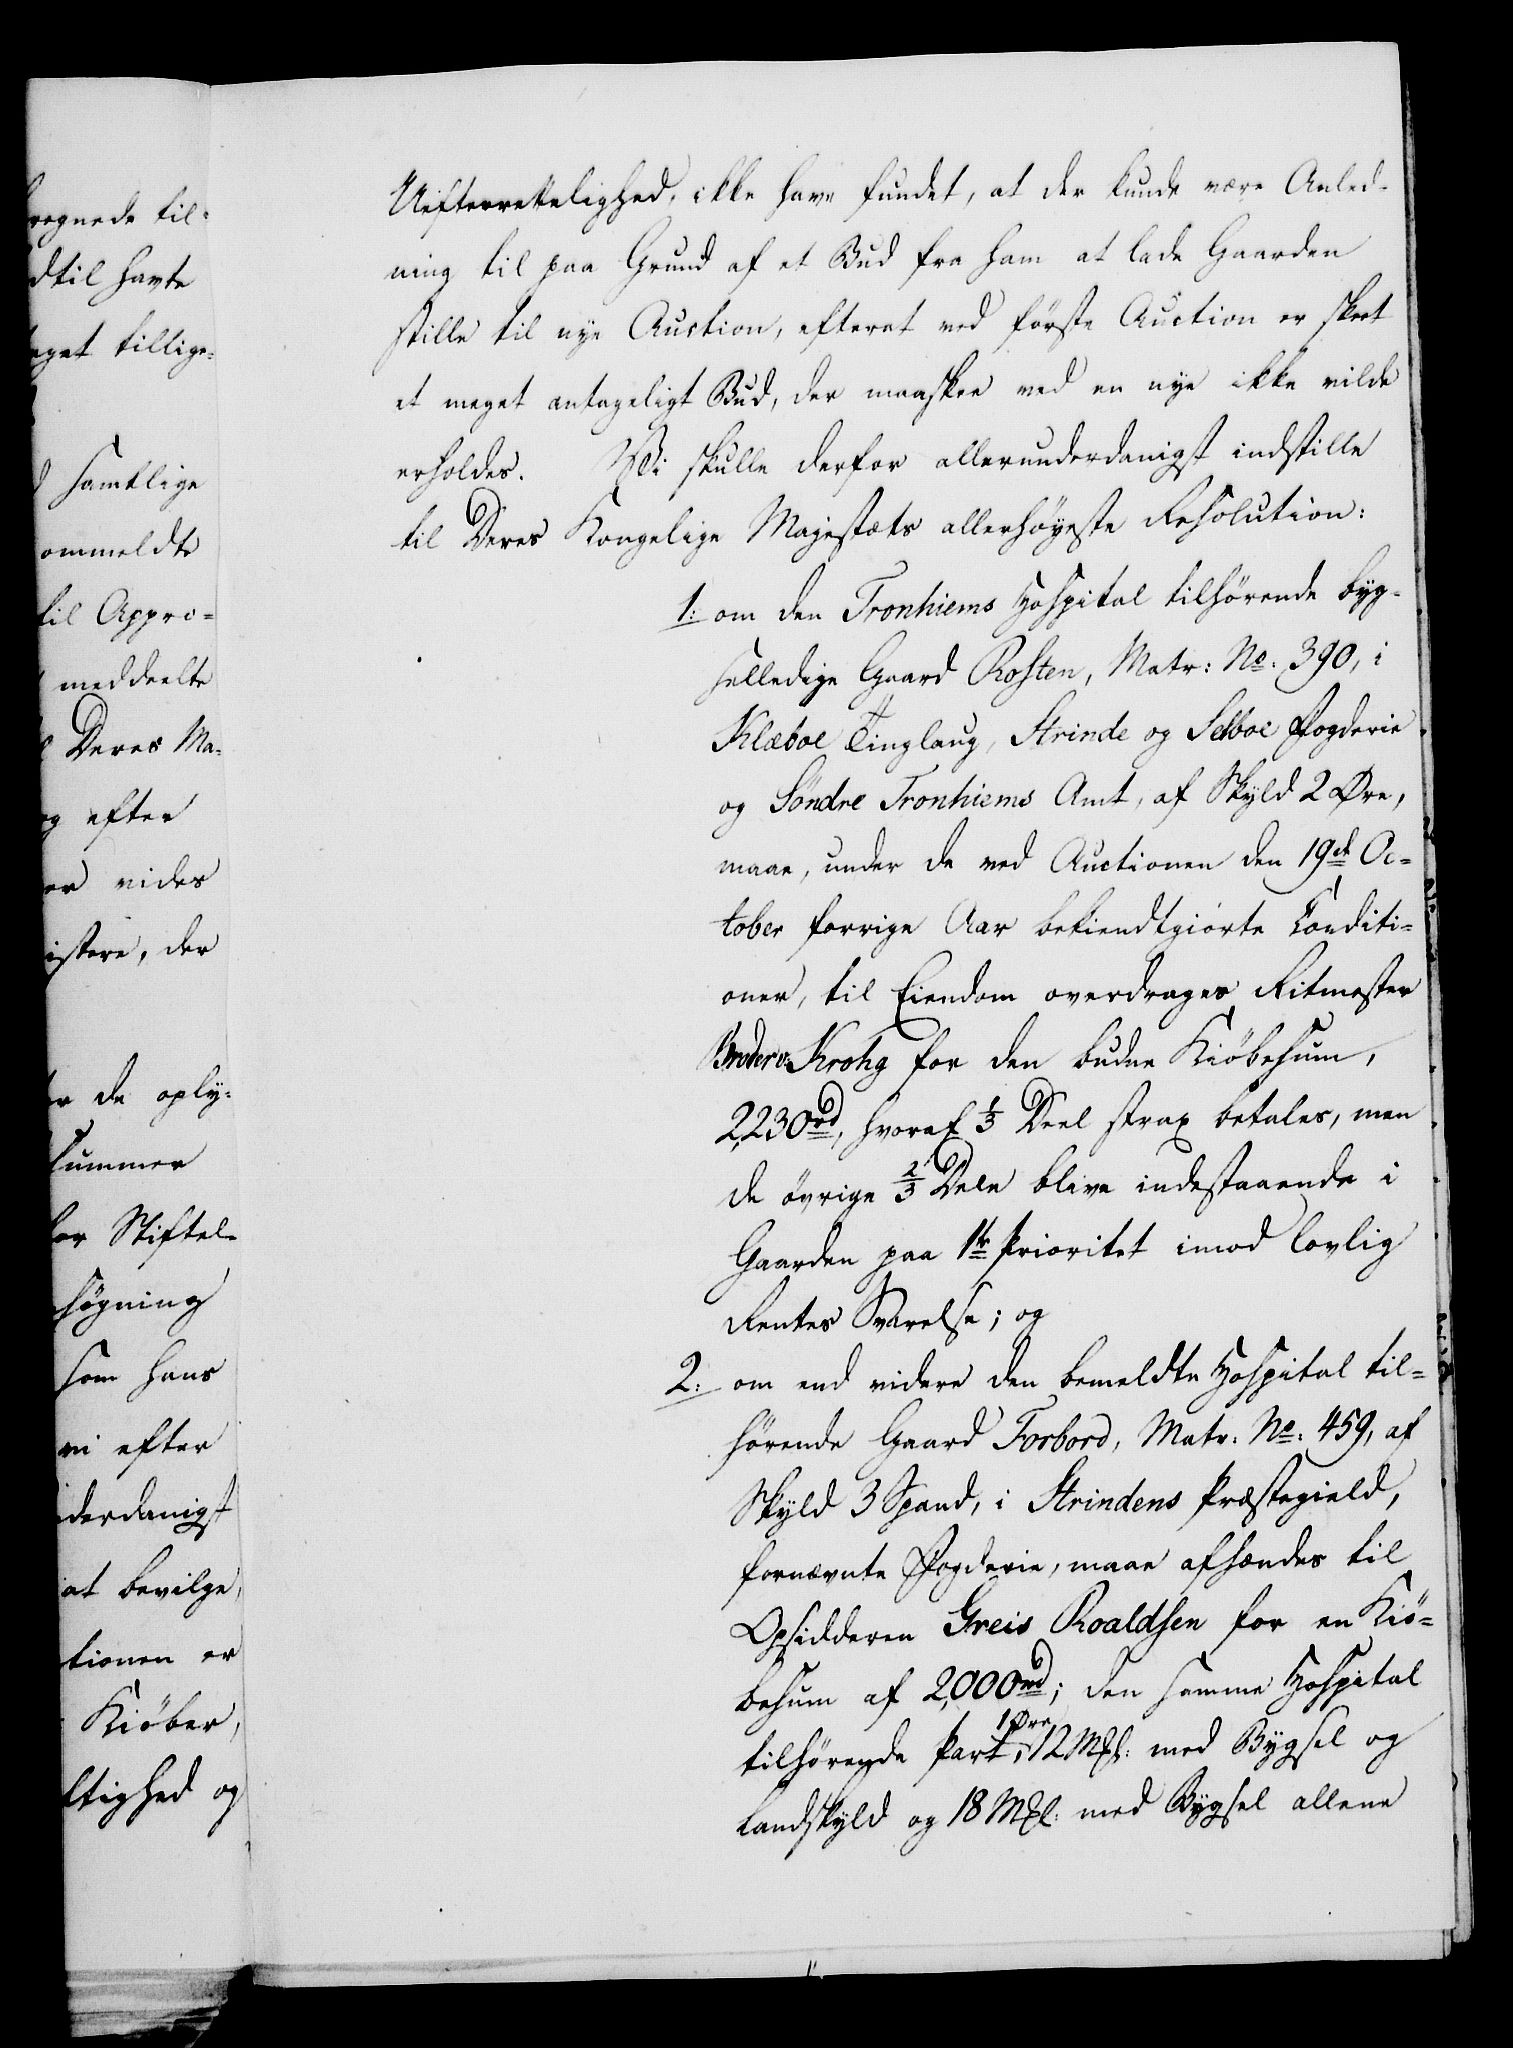 regnede til-
dtil havte
eget tillige-
samtlige
ommeldte
til Appro-
meddeelte
Deres Ma-
og efter
er vides
istere, der
de oply-
summer
for Stiftel-
søgning
som hans
vi efter
derdanigst
at bevilge,
tionen er
Kiöber,
ltighed og
Uefterretteligdhed, ikke have fundet, at der kunde være Anled-
ning til paa Grund af et Bud fra ham at lade Gaarden
stille til nye Auction, efterat ved förste Auction er skeet
et meget antageligt Bud, der maaskee ved en nye ikke vilde
erholdes. Vi skulle derfor allerunderdanigst indstille
til Deres Kongelige Majestæts allerhöyeste Resolution:
1: om den Tronhiems Hospital tilhörende byg-
selledige Gaard Rosten, Matr: No. 390, i
Klæboe Tinglaug, Strinde og Selboe Fogderie
og Söndre Tronhiems Amt, af Skyld 2 Øre,
maae, under de ved Auctionen den 19de Oc-
tober forrige Aar bekiendtgiorte Conditi-
oner, til Eiendom overdrages Ritmester
Broder v: Krohg for den budne Kiöbesum,
2,230 rd, hvoraf 1/3 Deel strax betales, men
de övrige 2/3 Dele blive indestaaende i
Gaarden paa 1te Prioritet imod lovlig
Rentes Svarelse; og
2: om end videre den bemeldte Hospital til-
hörende Gaard Forbord, Matr: No: 459, af
Skyld 3 Spand, i Strindens Præstegield,
fornævnte Fogderie, maae afhændes til
Opsidderen Greis Roaldsen for en Kiö-
besum af 2,000 rd; den samme Hospital
1 Øre
tilhörende Part, 12 Mkl: med Bygsel og
Landskyld og 18 Mkl: med Bygsel allene